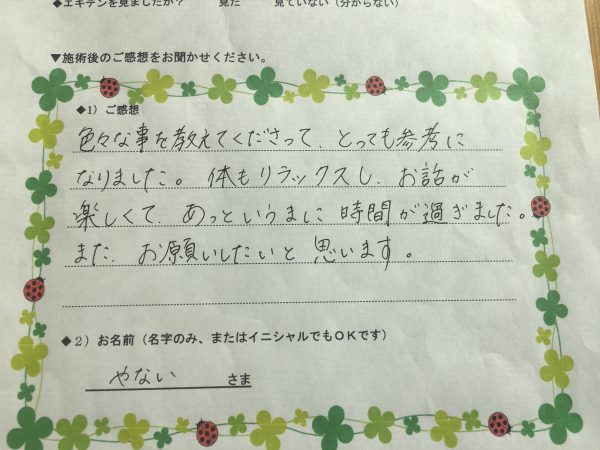 ◆エキテンを見ましたか? 見た 見ていない(分からない)
▼施術後のご感想をお聞かせください。
◆1)ご感想
色々な事を教えてくださって、とっても参考に
なりました。体もリラックスし、お話が
楽しくて、あっというまに時間が過ぎました。
また、お願いしたいと思います。
◆2)お名前(名字のみ、またはイニシャルでもOKです)
やない さま